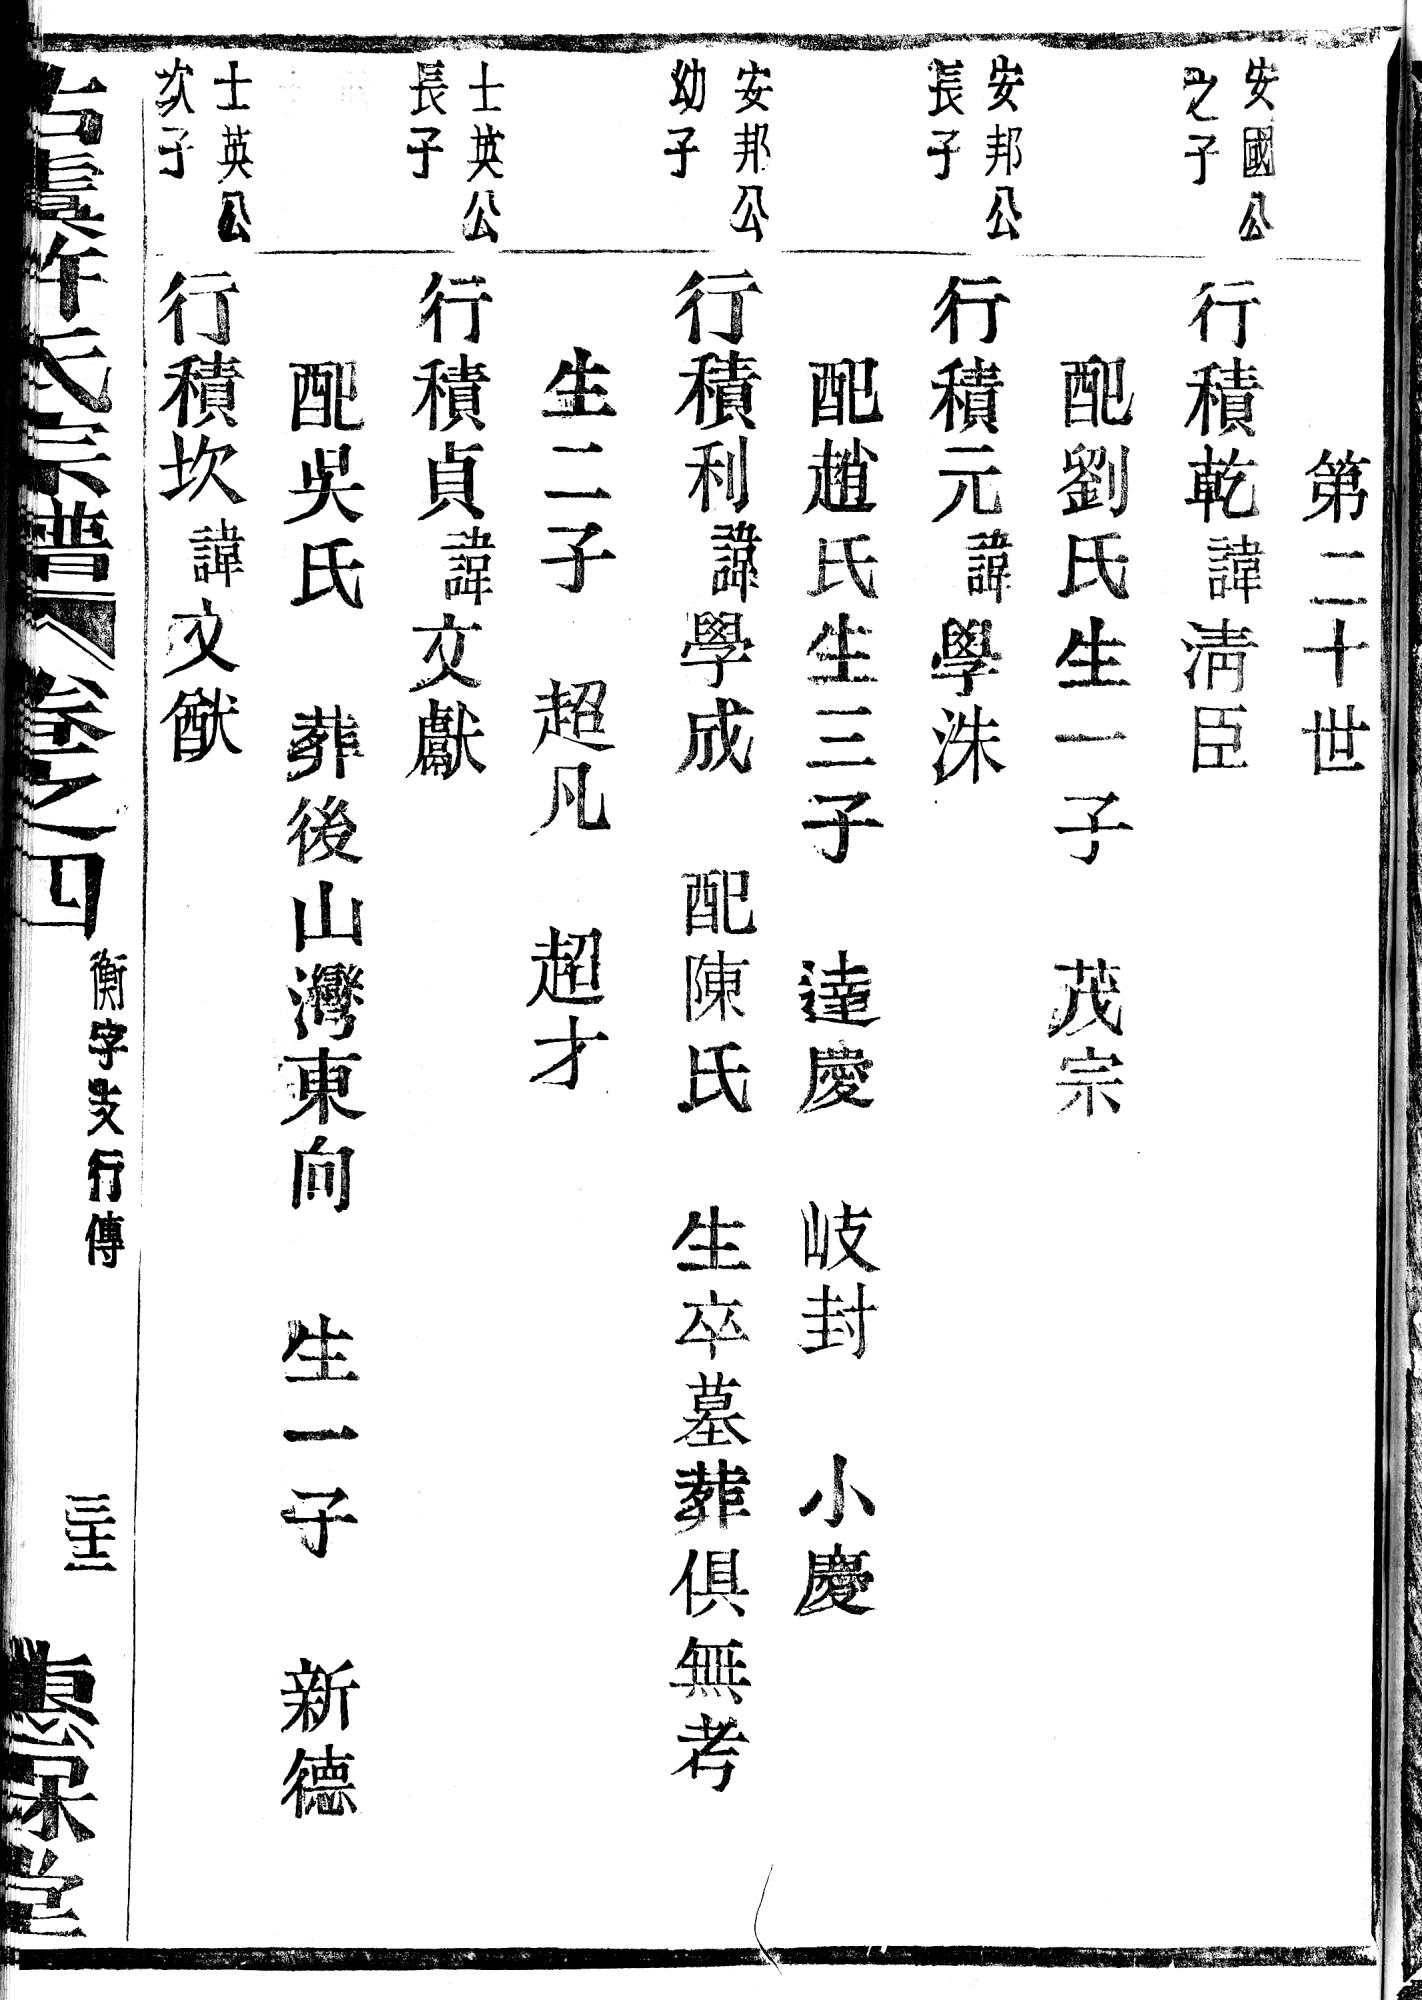 第二十世
安國公
之子
行積乾諱淸臣
配劉氏生一子 茂宗
安邦公
長子
行積元諱學洙
配趙氏生三子 達慶 岐封 小慶
安邦公
幼子
行積利諱學成 配陳氏 生卒墓葬俱無考
生二子 超凡 超才
士英公
長子
行積貞諱文獻
配吳氏 葬後山灣東向 生一子 新德
士英公
次子
行積坎諱文猷
古虞許氏宗譜 卷之四 衡字支行傳 三十三 惠保堂